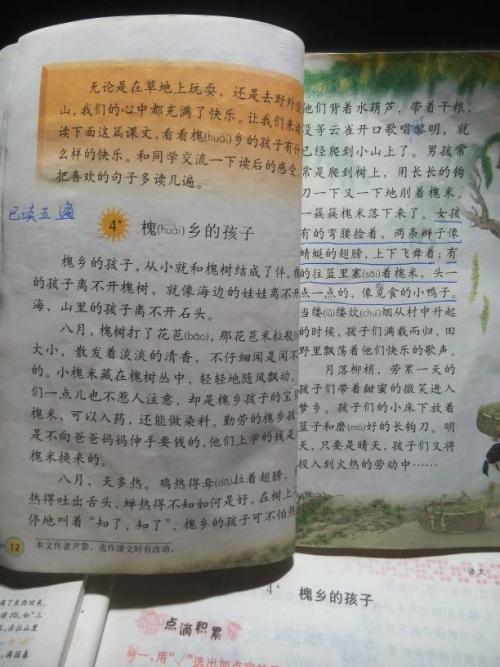 无论是在草地上玩耍，还是去野外
山，我们的心中都充满了快乐。让我们来
读下面这篇课文，看看槐(huái)乡的孩子有什
么样的快乐。和同学交流一下读后的感受，
把喜欢的句子多读几遍。
已读五遍
4* 槐(huái)乡的孩子
槐乡的孩子，从小就和槐树结成了伴。
的孩子离不开槐树，就像海边的娃娃离不开
海，山里的孩子离不开石头。
八月，槐树打了花苞(bāo)，那花苞米粒般
大小，散发着淡淡的清香，不仔细闻是闻不
的。小槐米藏在槐树丛中，轻轻地随风飘动，
们一点儿也不惹人注意，却是槐乡孩子的宝贝
槐米，可以入药，还能做染料。勤劳的槐乡孩
是不向爸爸妈妈伸手要钱的，他们上学的钱是
槐米换来的。
八月，天多热。鸡热得耷(dā)拉着翅膀，
热得吐出舌头，蝉热得不知如何是好，在树上
停地叫着“知了，知了”。槐乡的孩子可不怕热
12
本文作者尹黎，选作课文时有改动。
他们背着水葫芦，带着干粮，
没等云雀开口歌唱黎明，就
已经爬到小山上了。男孩常
常是爬到树上，用长长的钩
刀一下又一下地削着槐米。
一簇簇槐米落下来了。女孩
有的弯腰捡着，两条辫子像
蜻蜓的翅膀，上下飞舞着；有
的往篮里塞(sāi)着槐米，头一
点一点的，像觅食的小鸭子。
当缕(lǚ)缕炊(chuī)烟从村中升起
的时候，孩子们满载而归，田
野里飘荡着他们快乐的歌声。
月落柳梢，劳累一天的
孩子们带着甜蜜的微笑进入
梦乡。孩子们的小床下放着
篮子和磨(mó)好的长钩刀。明
天，只要是晴天，孩子们又将
投入到火热的劳动中……
语文
4* 槐乡的孩子
点滴积累
一、用“√”选出加点字的